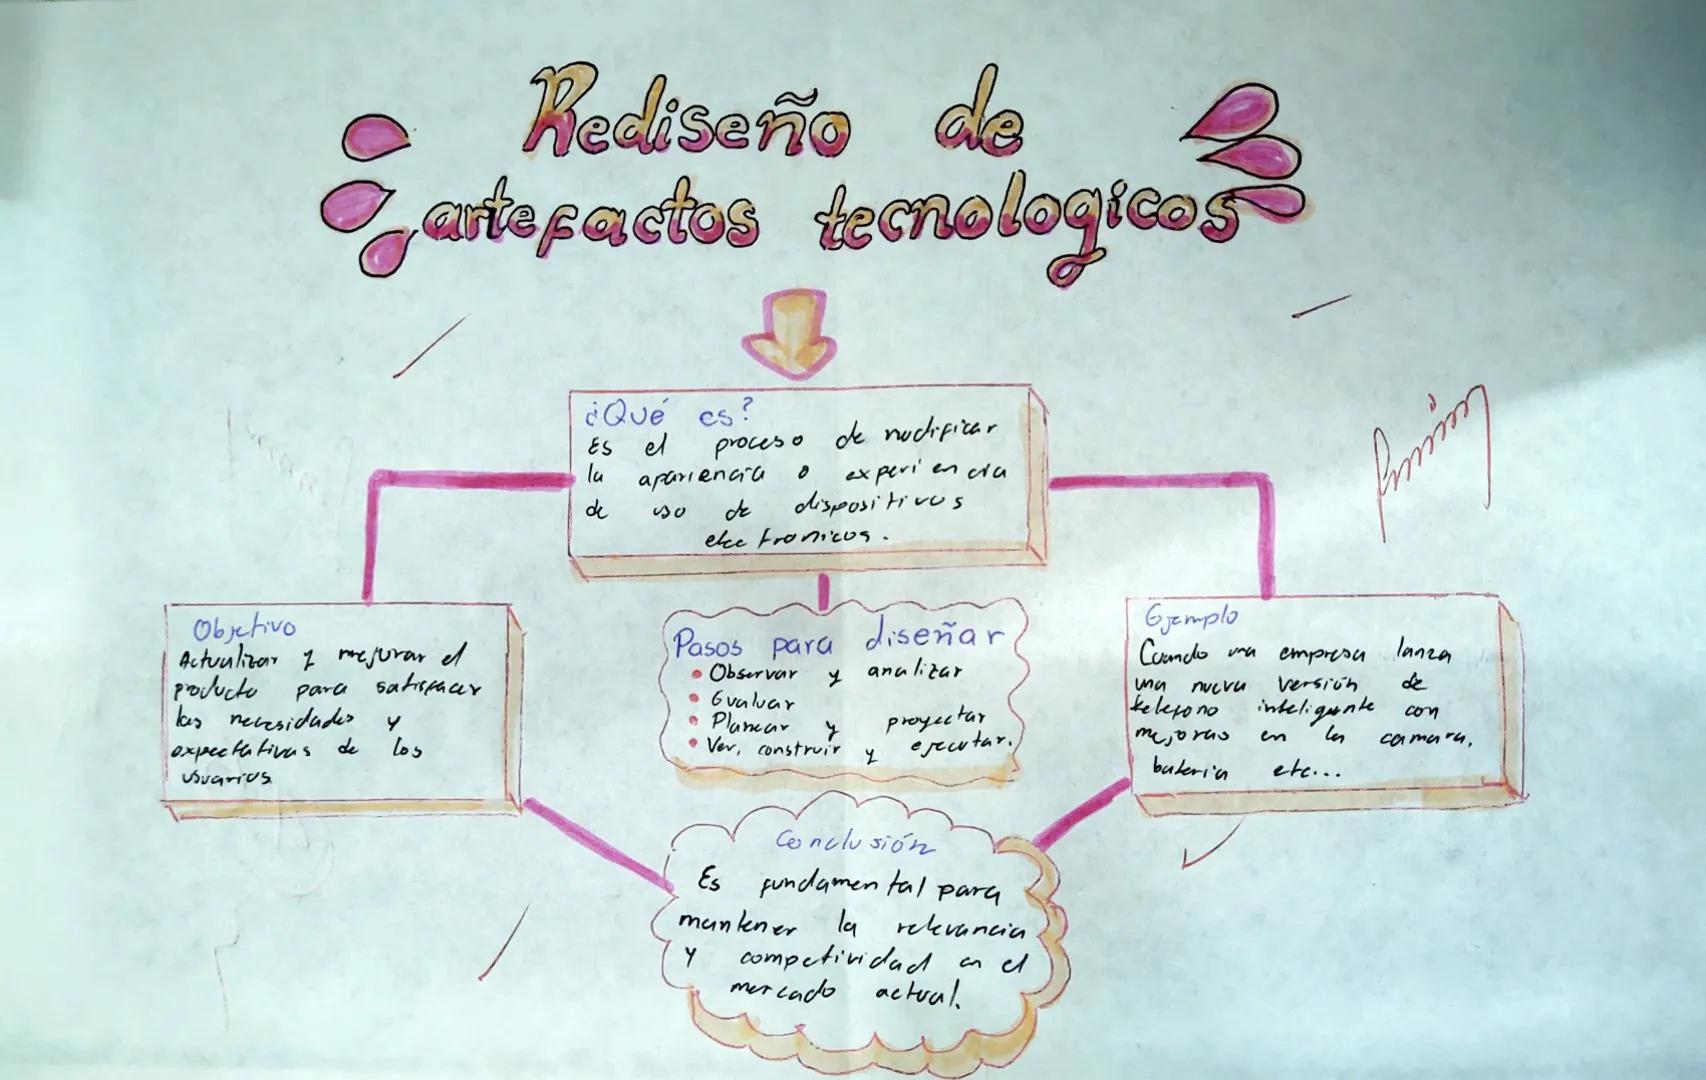 Rediseño de
artefactos tecnologicos
¿Qué es?
Es el proceso de modificar
la apariencia o experiencia
de uso de dispositivos
electronicos.
Objetivo
Actualizar y mejorar el
producto para satisfacer
las necesidades y
expectativas de los
usuarios
Pasos para diseñar
• Observar y analizar
• Evaluar
• Planear y proyectar
• Ver, construir y ejecutar.
Ejemplo
Cuando una empresa lanza
una nueva versión de
telefono inteligente con
mejoras en la camara,
bateria etc...
Conclusión
Es fundamental para
mantener la relevancia
y competividad en el
mercado actual.